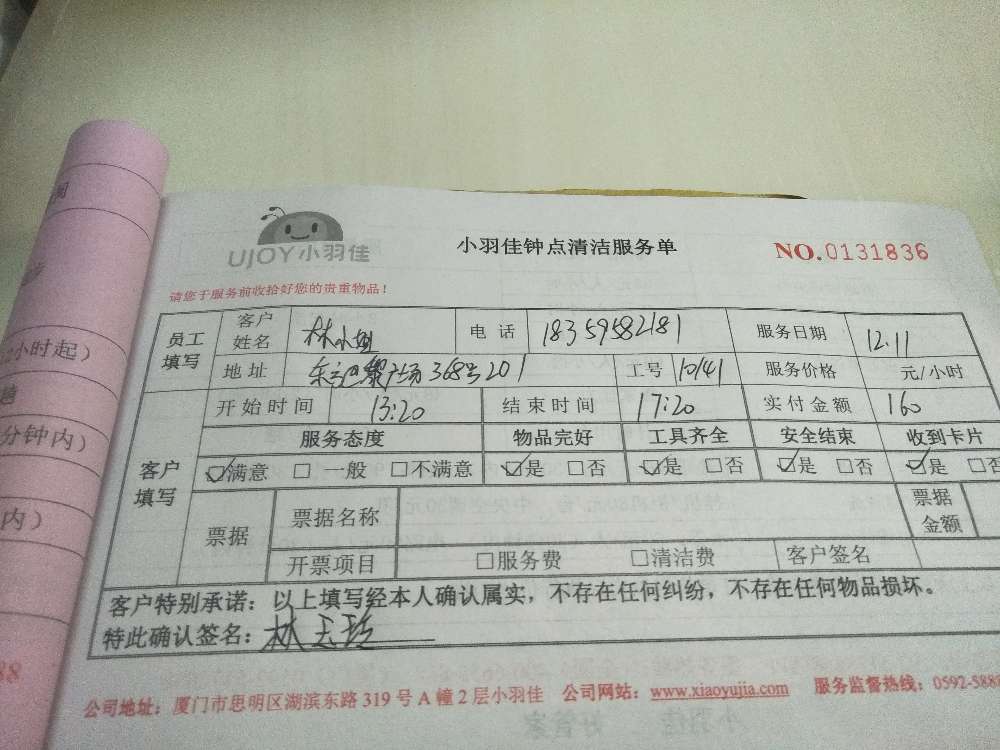 UJOY小羽佳
小羽佳钟点清洁服务单
NO.0131836
请您于服务前收拾好您的贵重物品！
员工填写 客户姓名 林小姐 电话 18359582181 服务日期 12.11
地址 广场368号201 工号 10141 服务价格 元/小时
客户填写 开始时间 13:20 结束时间 17:20 实付金额 160
服务态度 物品完好 工具齐全 安全结束 收到卡片
☑满意 □一般 □不满意 ☑是 □否 ☑是 □否 ☑是 □否 ☑是 □否
票据 票据名称 票据金额
开票项目 □服务费 □清洁费 客户签名
客户特别承诺：以上填写经本人确认属实，不存在任何纠纷，不存在任何物品损坏。
特此确认签名：林玉
公司地址：厦门市思明区湖滨东路319号A幢2层小羽佳 公司网站：www.xiaoyujia.com 服务监督热线：0592-5888
小时起）
分钟内）
内）
88